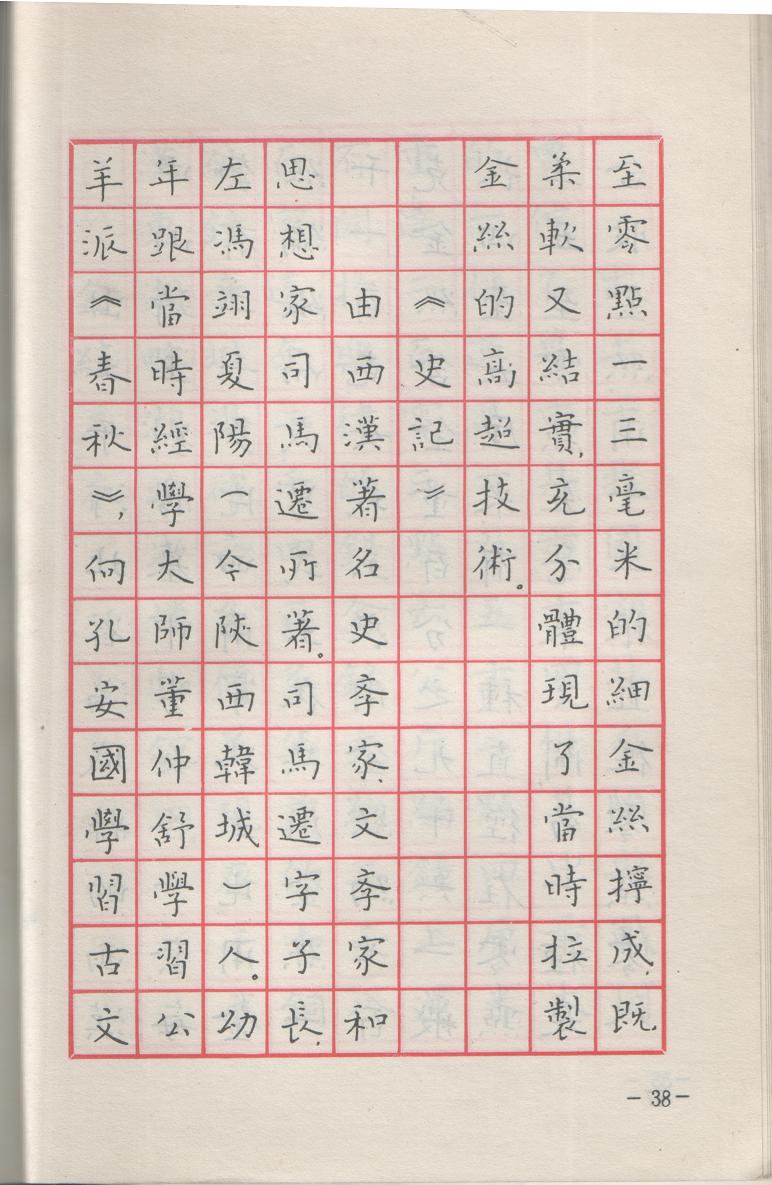 至零點一三毫米的細金絲擰成,既
柔軟又結實,充分體現了當時拉製
金絲的高超技術。
《史記》
由西漢著名史斈家、文斈家和
思想家司馬遷所著。司馬遷字子長,
左馮翊夏陽(今陝西韓城)人。幼
年跟當時經學大師董仲舒學習公
羊派《春秋》,向孔安國學習古文
-38-